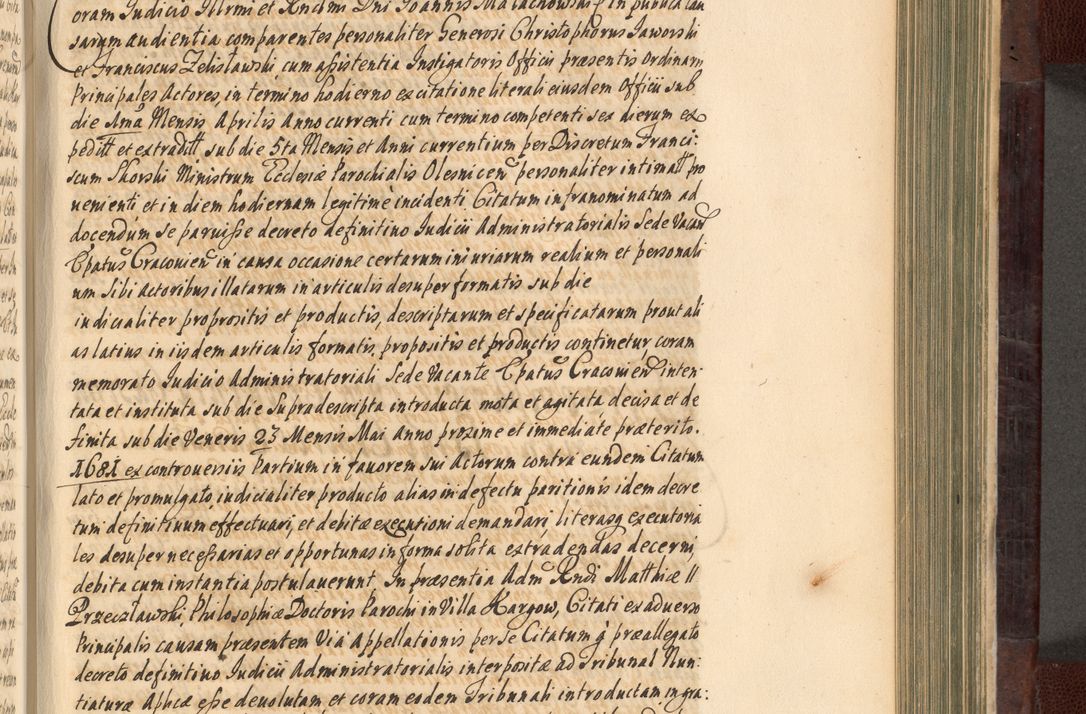 oram Judicio Illrmi et Rndmi Dni Joannis Małachowski in publica cau
sarum audientia comparentes personaliter Generosi Christophorus Jaworski
et Franciscus Zelisławski cum assistentia Instigatoris Officii præsentis Ordinarii
Principales Actores, in termino hodierno ex citatione literali eiusdem Officii sub
die 1ma Mensis Aprilis Anno currenti cum termino competenti sex dierum ex
peditt et extraditt, sub die 5ta Mensis et Anni currentium per Discretum Franci:
scum Skorski Ministrum Ecclesiæ Parochialis Olesnicen personaliter intimatt pro
uenienti et in diem hodiernam legitimè incidenti Citatum infranominatum ad
docendum se paruisse decreto definitiuo Judicii Administratorialis Sede Vacan
Epatus Cracouien in causa occasione certarum iniuriarum realium et personali
um sibi Actoribus illatarum in articulis desuper formatis sub die
iudicialiter propositis et productis, descriptarum et specificatarum prout ali
as latius in iisdem articulis formatis, propositis et productis continetur coram
memorato Judicio Administratoriali Sede Vacante Epatus Cracouien inten
tata et instituta sub die supradescripta introducta mota et agitata decisa et de
finita sub die Veneris 23 Mensis Mai Anno proxime et immediatè præterito.
1681 ex controuersiis Partium in fauorem sui Actorum contra eundem Citatum
lato et promulgato, iudicialiter producto alias in defectu paritionis idem decre
tum definitiuum effectuari, et debitæ executioni demandari, literasq executoria
les desuper necessarias et opportunas in forma solita extradendas decerni,
debita cum instantia postulauerunt. In præsentia Adm Rndi Matthiæ
Przeczławski, Philosophiæ Doctoris Parochi in Villa Kargow, Citati ex aduerso
Principalis causam præsentem Via Appellationis per se Citatum à præallegato
decreto definitiuo Judicii Administratorialis interpositæ ad Tribunal Nun:
tiaturæ Aplicæ esse deuolutam et coram eodem Tribunali introductam